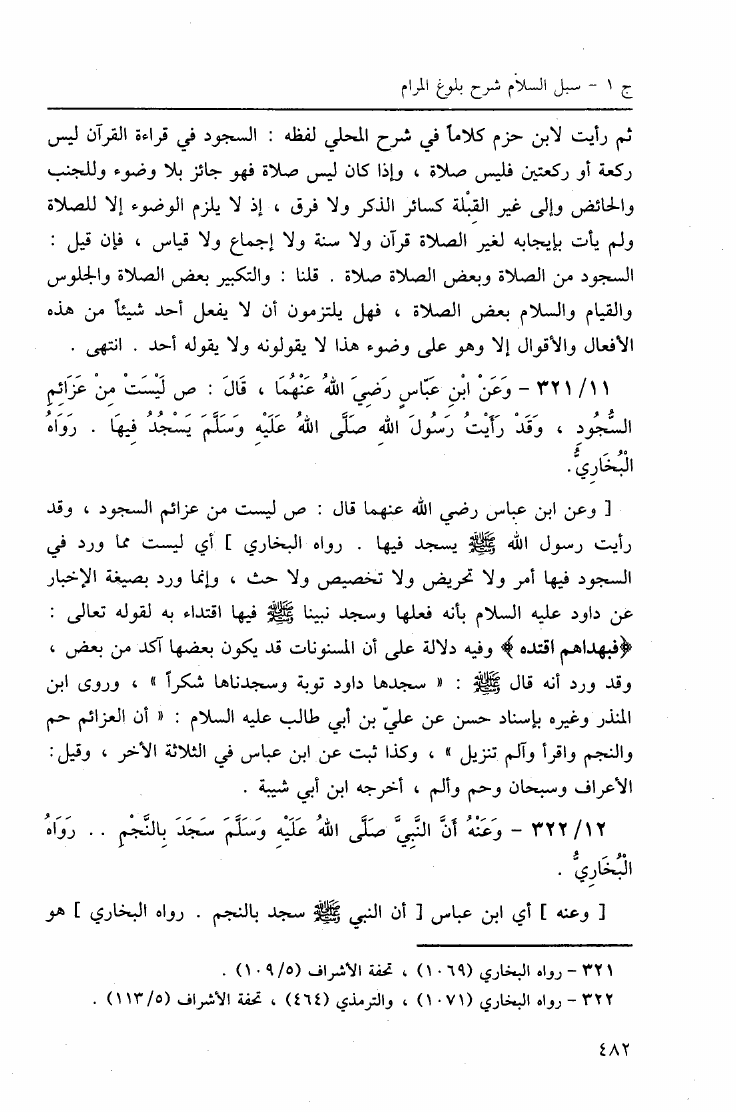 ج ١ - سبل السلام شرح بلوغ المرام
ثم رأيت لابن حزم كلاماً في شرح المحلي لفظه : السجود في قراءة القرآن ليس
ركعة أو ركعتين فليس صلاة ، وإذا كان ليس صلاة فهو جائز بلا وضوء وللجنب
والحائض وإلى غير القبْلة كسائر الذكر ولا فرق ، إذ لا يلزم الوضوء إلا للصلاة
ولم يأت بإيجابه لغير الصلاة قرآن ولا سنة ولا إجماع ولا قياس ، فإن قيل :
السجود من الصلاة وبعض الصلاة صلاة . قلنا : والتكبير بعض الصلاة والجلوس
والقيام والسلام بعض الصلاة ، فهل يلتزمون أن لا يفعل أحد شيئاً من هذه
الأفعال والأقوال إلا وهو على وضوء هذا لا يقولونه ولا يقوله أحد . انتهى .
٣٢١/١١ - وَعَنْ ابْنِ عَبّاسٍ رَضِيَ اللهُ عَنْهُمَا ، قَالَ : ص لَيْسَتْ مِنْ عَزَائِمِ
السُّجُودِ ، وَقَدْ رَأَيْتُ رَسُولَ اللهِ صَلَّى اللهُ عَلَيْهِ وَسَلَّمَ يَسْجُدُ فِيهَا . رَوَاهُ
الْبُخَارِيُّ.
[ وعن ابن عباس رضي الله عنهما قال : ص ليست من عزائم السجود ، وقد
رأيت رسول الله ﷺ يسجد فيها . رواه البخاري ] أي ليست مما ورد في
السجود فيها أمر ولا تحريض ولا تخصيص ولا حث ، وإنما ورد بصيغة الإخبار
عن داود عليه السلام بأنه فعلها وسجد نبينا ﷺ فيها اقتداء به لقوله تعالى :
﴿فبهداهم اقتده﴾ وفيه دلالة على أن المسنونات قد يكون بعضها آكد من بعض ،
وقد ورد أنه قال ﷺ : « سجدها داود توبة وسجدناها شكراً » ، وروى ابن
المنذر وغيره بإسناد حسن عن عليّ بن أبي طالب عليه السلام : « أن العزائم حم
والنجم واقرأ وآلم تنزيل » ، وكذا ثبت عن ابن عباس في الثلاثة الأخر ، وقيل :
الأعراف وسبحان وحم وألم ، أخرجه ابن أبي شيبة .
٣٢٢/١٢ - وَعَنْهُ أَنَّ النَّبِيَّ صَلَّى اللهُ عَلَيْهِ وَسَلَّمَ سَجَدَ بِالنَّجْمِ .. رَوَاهُ
الْبُخَارِيُّ .
[ وعنه ] أي ابن عباس [ أن النبي ﷺ سجد بالنجم . رواه البخاري ] هو
٣٢١ - رواه البخاري (١٠٦٩) ، تحفة الأشراف (١٠٩/٥) .
٣٢٢ - رواه البخاري (١٠٧١) ، والترمذي (٤٦٤) ، تحفة الأشراف (١١٣/٥) .
٤٨٢